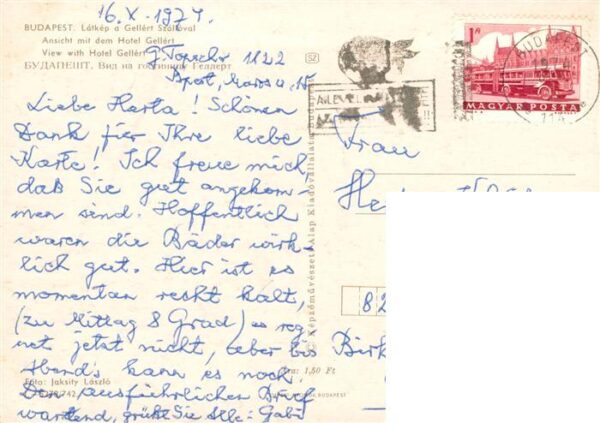 16. X. 1974.
BUDAPEST. Látkép a Gellért Szállóval
Ansicht mit dem Hotel Gellért
View with Hotel Gellért
БУДАПЕШТ. Вид на гостиницу Геллерт
1122
Bpest, Maros u.
Liebe Herta! Schönen
Dank für Ihre liebe
Karte! Ich freue mich,
daß Sie gut angekom-
men sind. Hoffentlich
waren die Bäder wirk-
lich gut. Hier ist es
momentan recht kalt,
(zu Mittag 8 Grad) es reg
net jetzt nicht, aber bis
Abend's kann es noch.
Den ausführlichen Brief
wartend, grüßt Sie Alle: Gabi
Foto: Jaksity László
SZ
Képzőművészeti Alap Kiadóvállalata
Ára: 1,50 Ft
BUDAPEST
1Ft
MAGYAR POSTA
BUDAPEST
1974
Frau
He
82
Birk